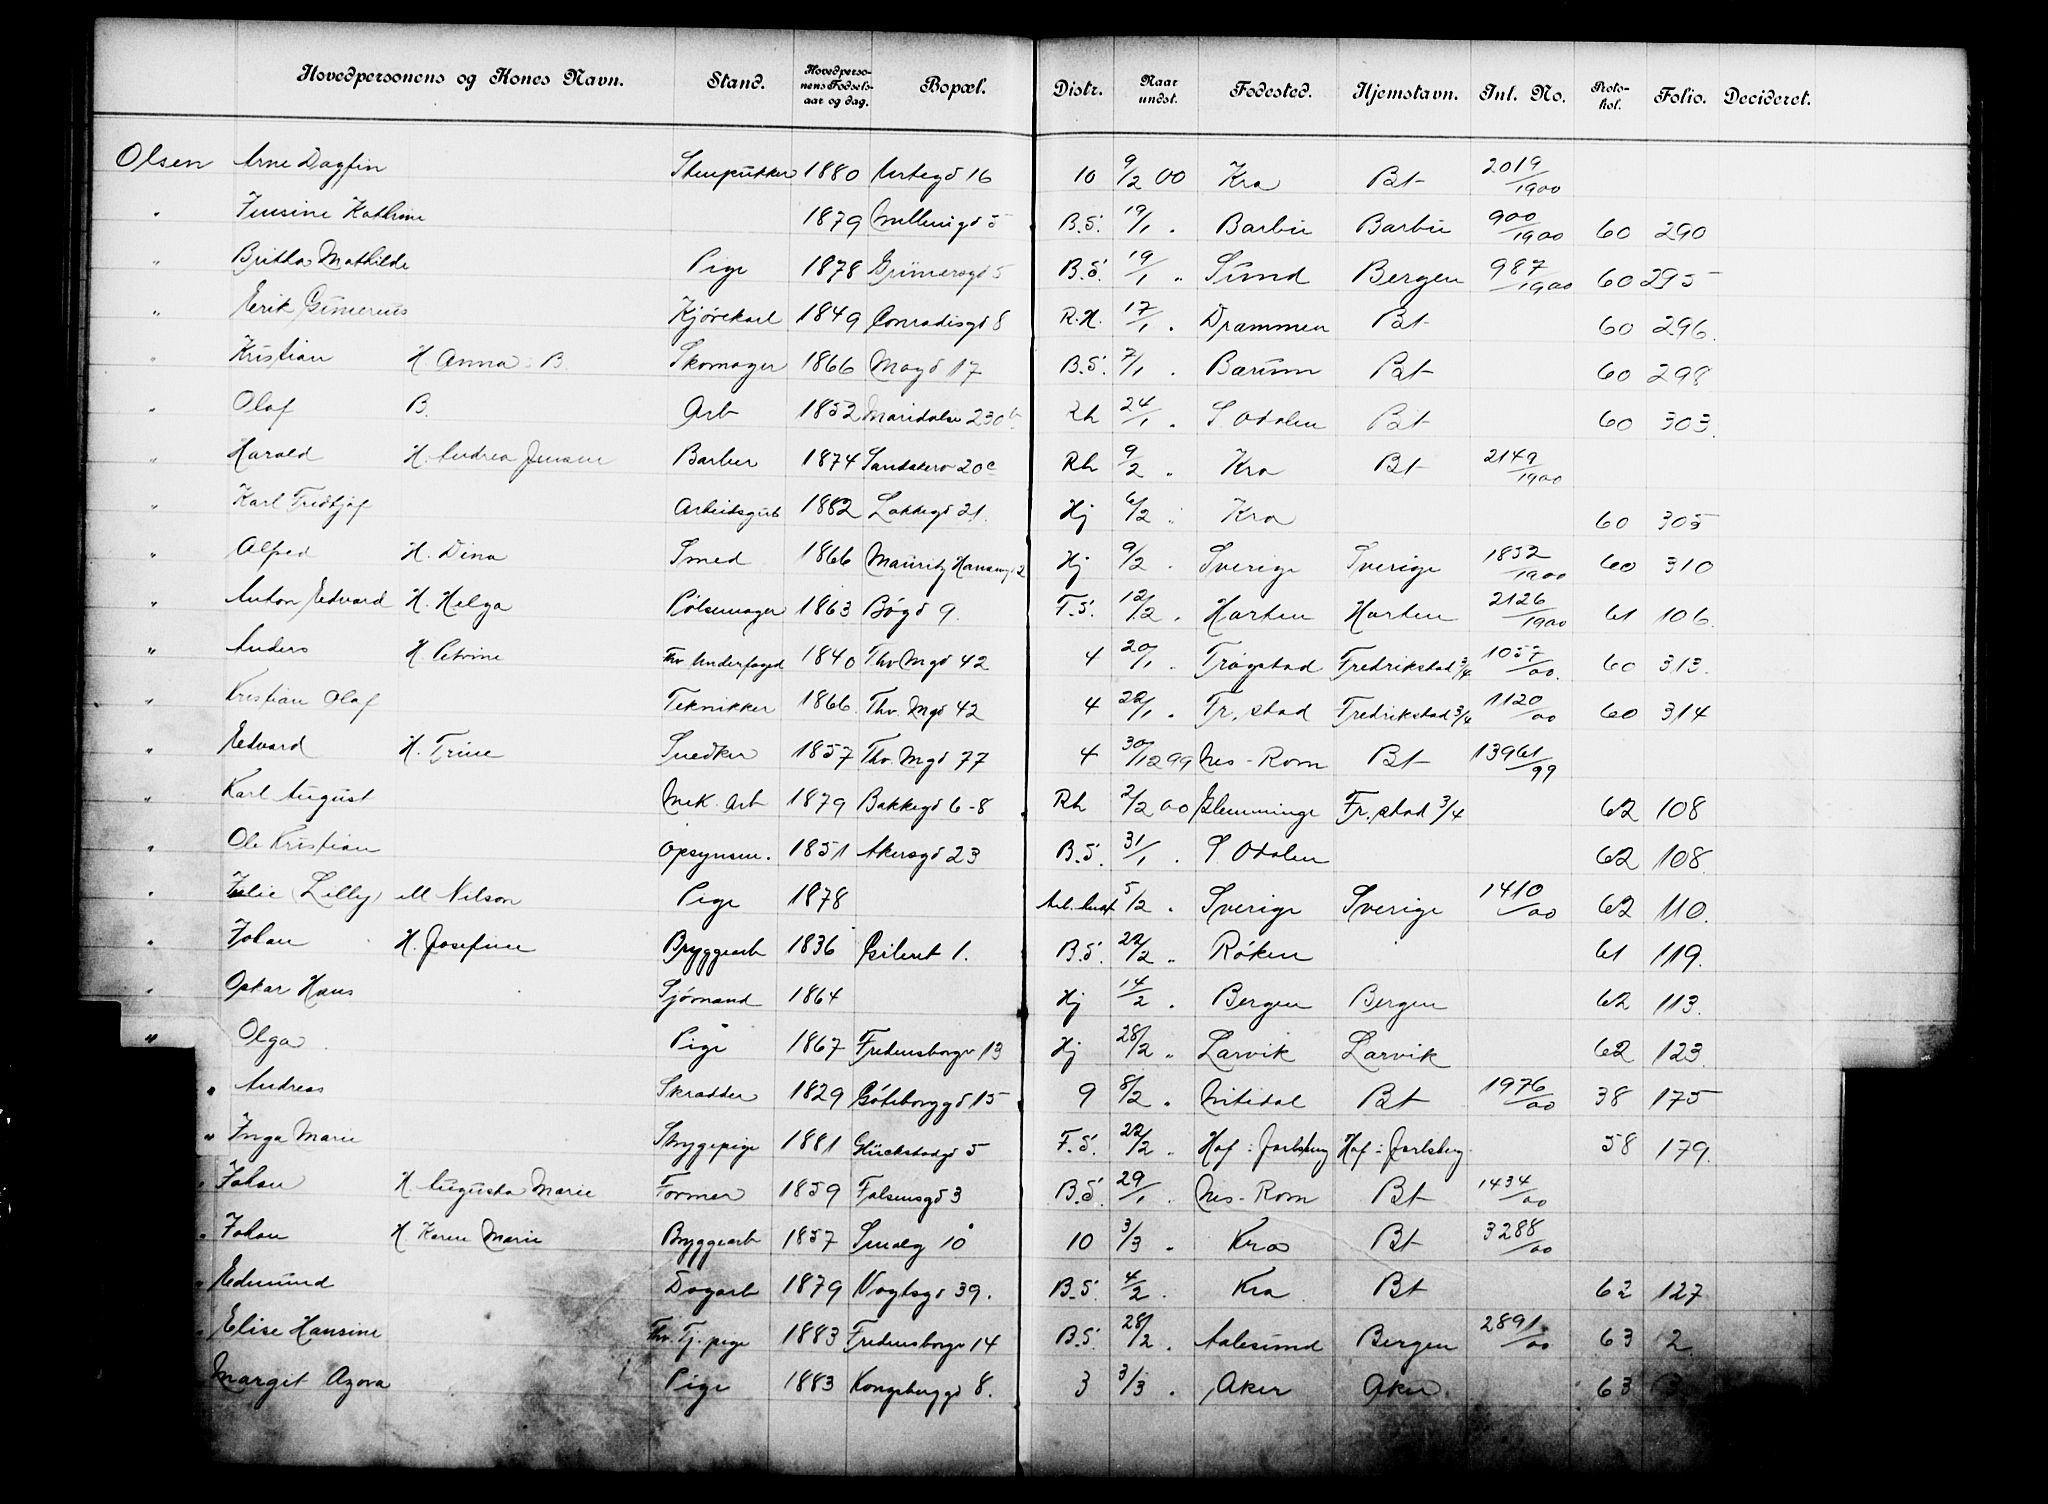 Hovedpersonens og Kones Navn. Stand. Hovedperso-nens Fødsels-aar og dag. Bopæl. Distr. Naar undst. Fødested. Hjemstavn. Int. No. Proto-kol. Folio. Decideret.
Olsen Arne Dagfin Stenpukker 1880 Urtegd 16 10 9/2 00 Kra Bt 2019/1900
" Jensine Kathrine 1879 5 B.S. 19/1 " Barbu Barbu 900/1900 60 290
" Britha Mathilde Pige 1878 Grünersgd 5 B.S. 19/1 " Sund Bergen 987/1900 60 295
" Erik Gunerius Kjørekarl 1849 Conradisgd 8 R.H. 17/1 " Drammen Bt 60 296.
" Kristian H. Anna B. Skomager 1866 Mogd 17 B.S. 7/1 " Bærum Bt 60 298
" Olaf B. Arb 1852 Maridalsv 230 b. Rh 24/1 " S. Odalen Bt 60 303.
" Harald H. Andrea Jensen Barber 1874 Sandakerv 20c Rh 9/2 " Kra Bt 2149/1900
" Karl Fredtjof Arbeidsgut 1882 Lakkegd 21. Hj 6/2 " Kra 60 305
" Alfred H. Dina Smed 1866 Mauritz Hansensg 2 Hj 9/2 " Sverige Sverige 1852/1900 60 310
" Anton Edvard H. Helga Pølsemager 1863 Bøgd 9. F.S. 12/12 " Horten Horten 2126/1900 61 106.
" Anders H. Petrine Fhv Underfoged 1840 Thv. Mgd 42 4 20/1 " Trøgstad Fredrikstad 3/4 1057/00. 60 313.
" Kristian Olaf Teknikker 1866. Thv. Mgd 42 4 22/1 " Fr.stad Fredrikstad 3/4 1120/00 60 314
" Edvard H. Trine Snedker 1857 Thv. Mgd 77 4 30/12 99 Nes - Rom Bt 13961/99
" Karl August Mek. Arb 1879 Bakkegd 6-8 Rh 2/2 00 Glemminge Fr.stad 3/4 62 108
" Ole Kristian Opsynsm. 1851 Akersgd 23 B.S. 31/1 " S Odalen 62 108.
" Julie (Lilly) ell Nilson Pige 1878 5/2 " Sverige Sverige 1410/00 62 110.
" Johan H. Josefine Bryggearb 1836 1. B.S. 22/2 " Røken 61 119.
" Oskar Hans Sjømand 1864 Hj 14/2 " Bergen Bergen 62 113.
" Olga Pige 1867 Fredensborgv 13 Hj 28/2 " Larvik Larvik 62 123
" Andreas Skrædder 1829 Göteborggd 15 9 8/2 " Nitedal Bt 1976/00 38 175
" Inga Marie Strygepige 1881 Glückstadgd 5 F.S. 22/2 " Hof i Jarlsberg Hof i Jarlsberg 58 179.
" Johan H. Augusta Marie Former 1859 Falsensgd 3 B.S. 29/1 " Nes - Rom Bt 1434/00
" Johan H Karen Marie Bryggearb 1857 Smalg 10 10 3/3 " Kra Bt 3288/00
" Edmund Dagarb 1879 Vogtsgd 39. B.S. 4/2 " Kra Bt 62 127
" Elise Hansine Fhv. Tj. pige 1883 Fredensborgv 14 B.S. 28/2 " Aalesund Bergen 2891/00 63 2.
Margit Agora Pige 1883 Kongsberggd 8. 3 3/3 " Aker Aker. 63